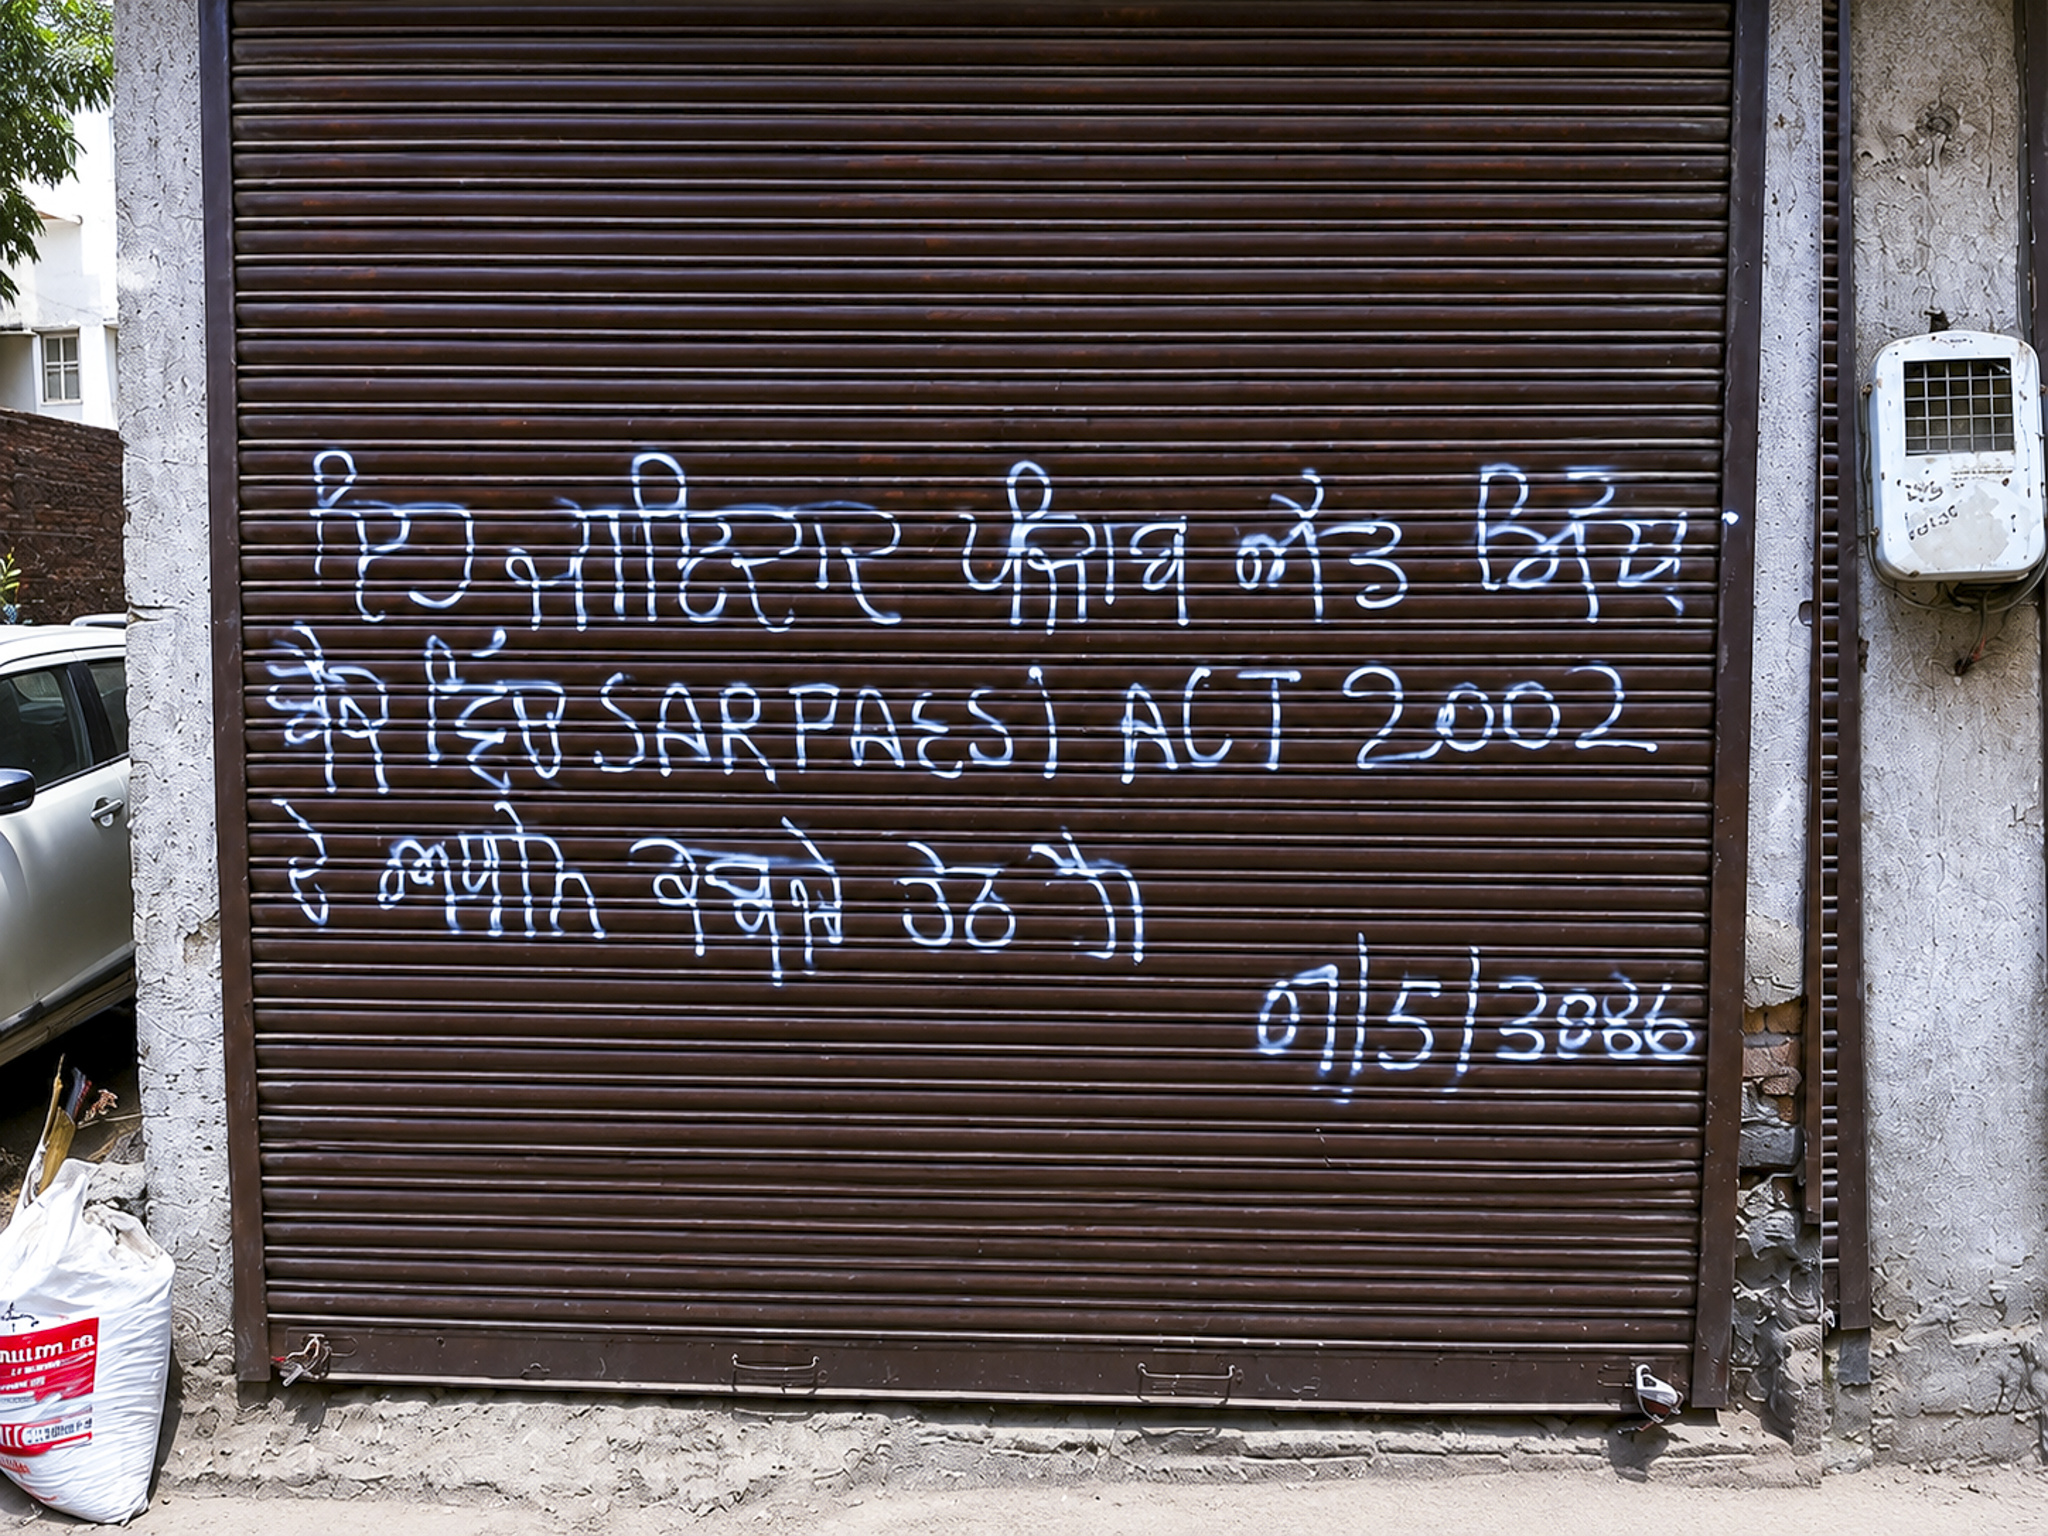 ਇਹ ਜਾਇਦਾਦ ਪੰਜਾਬ ਐਂਡ ਸਿੰਧ
ਬੈਂਕ ਵਿੱਚ SARPAESI ACT 2002
ਦੇ ਅਧੀਨ ਕਬਜੇ ਹੇਠ ਹੈ